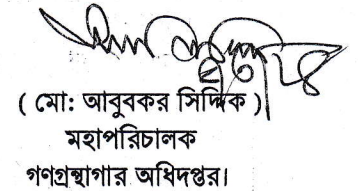 ( মো: আবুবকর সিদ্দিক )
মহাপরিচালক
গণগ্রন্থাগার অধিদপ্তর।